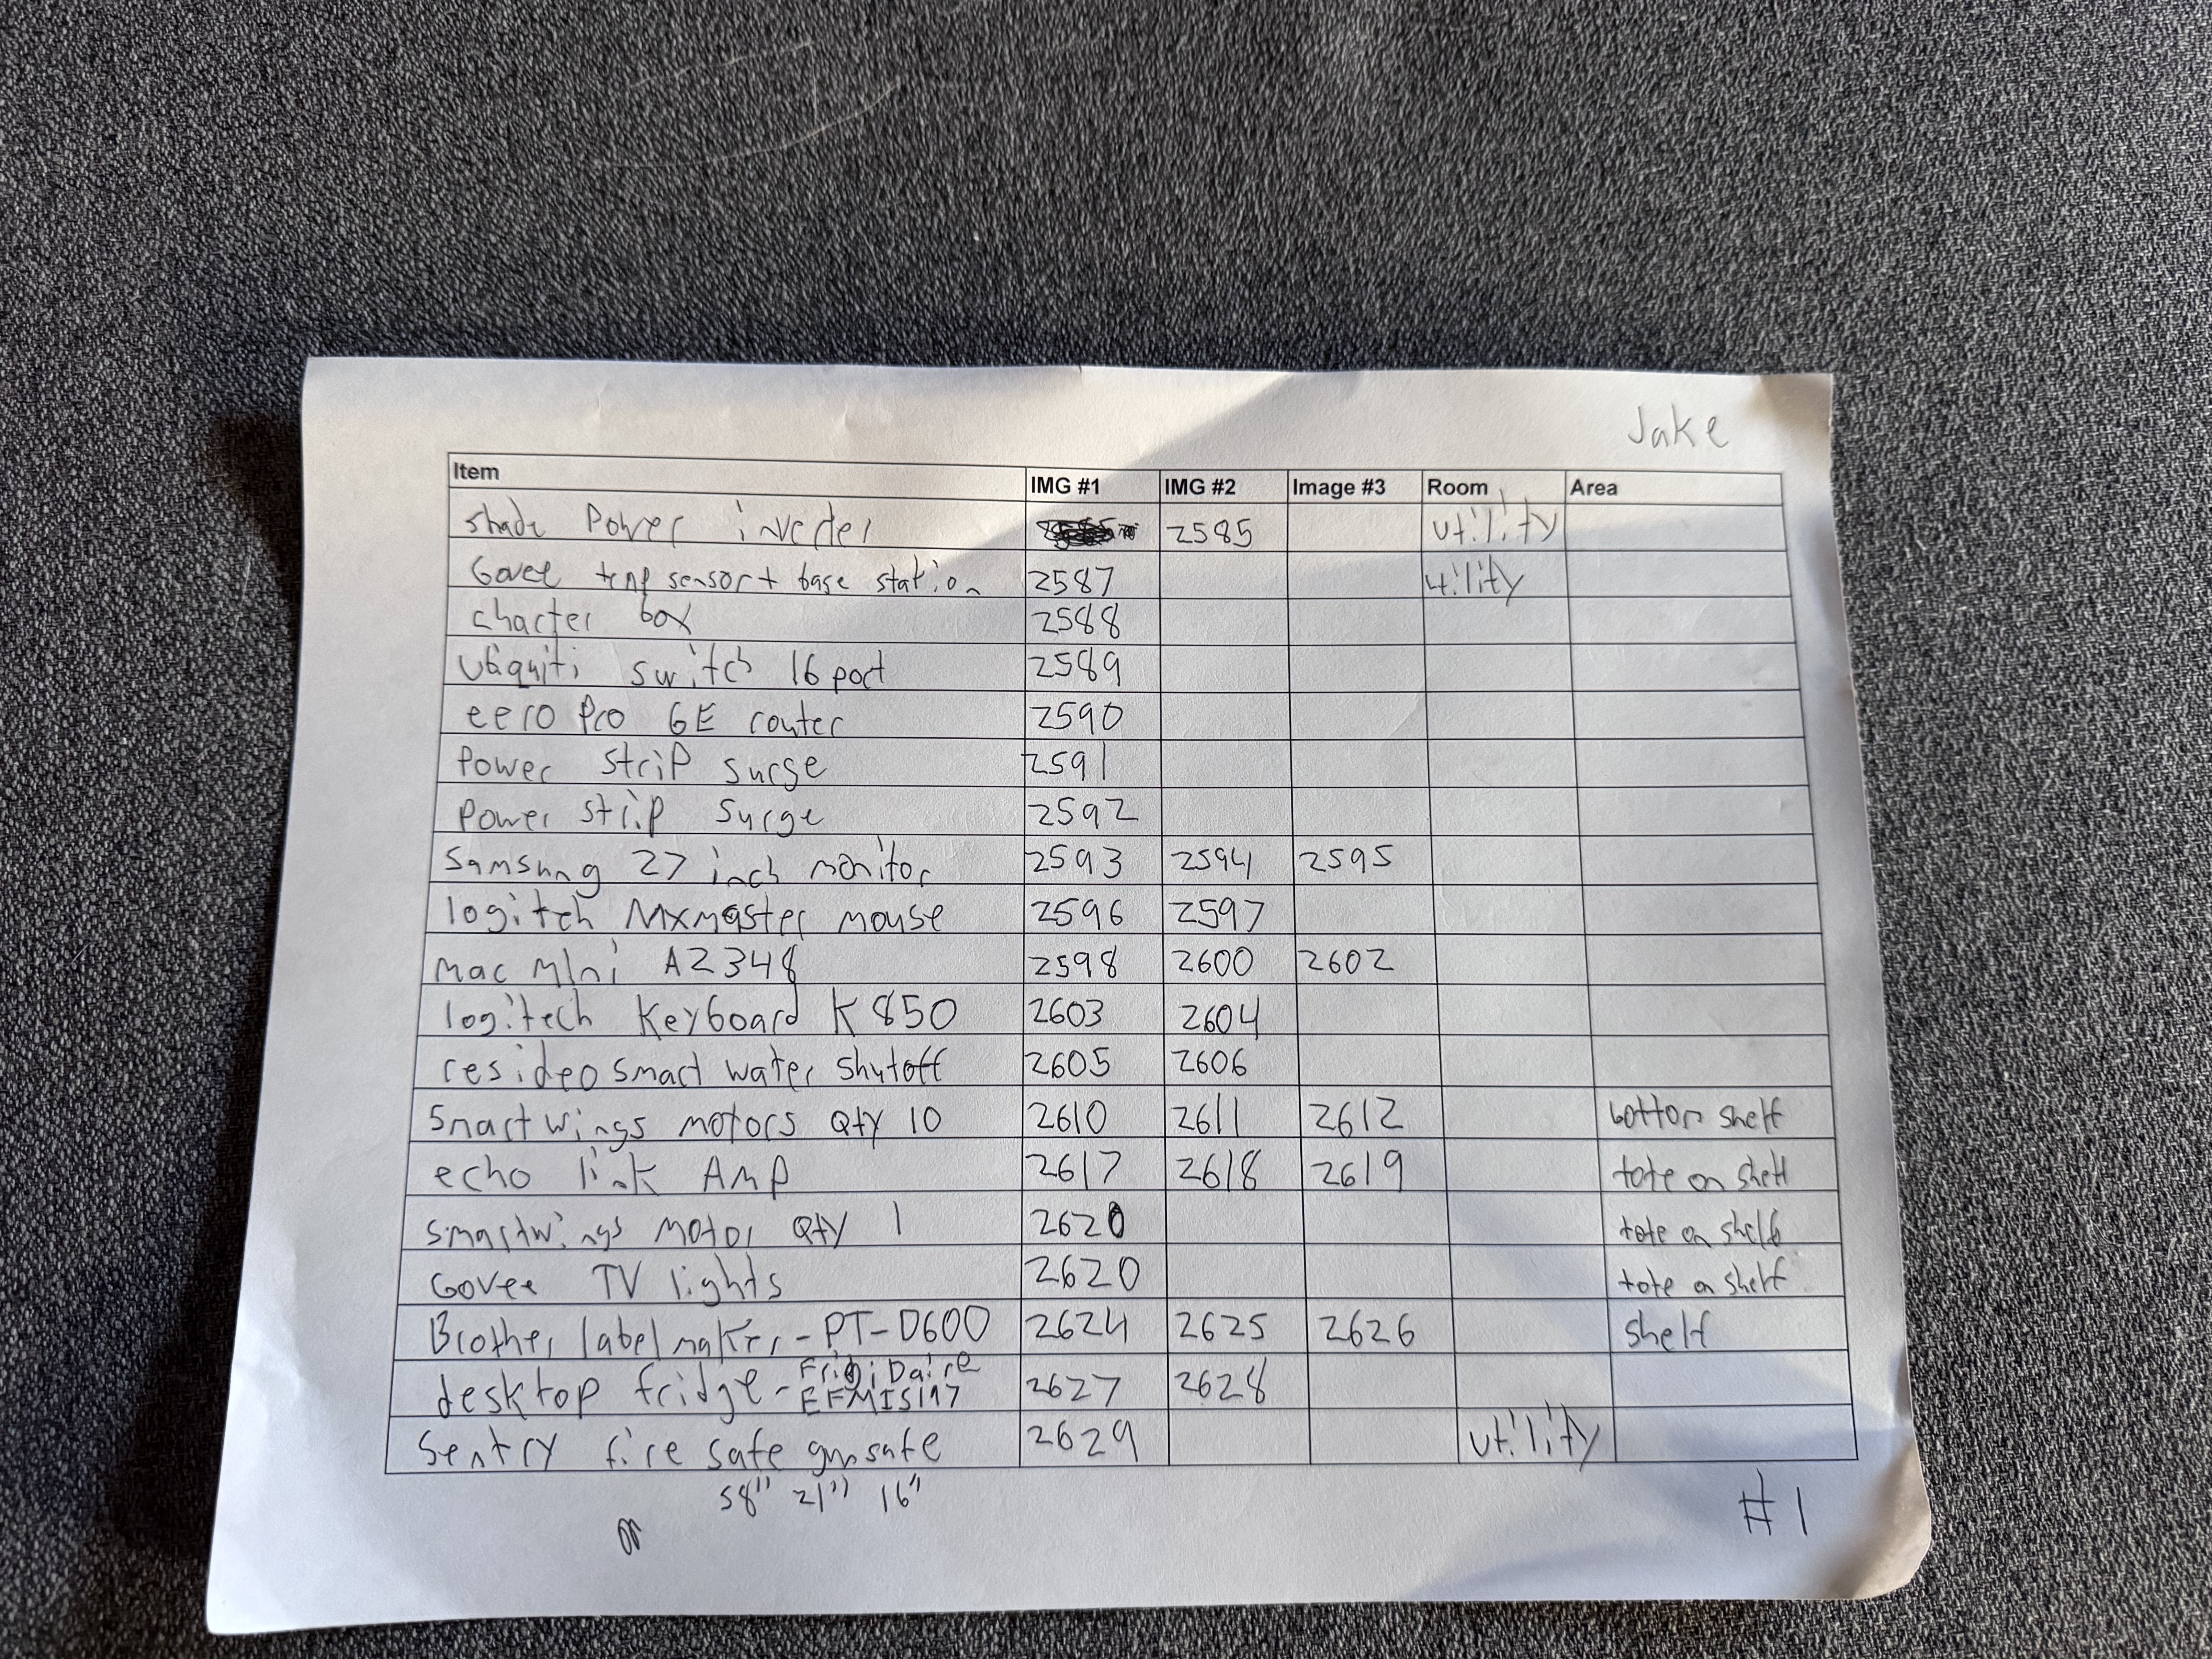 Jake
Item IMG #1 IMG #2 Image #3 Room Area
shade Power inverter 2585 utility
Govee temp sensor + base station 2587 utility
charter box 2588
Ubiquiti switch 16 port 2589
eero Pro 6E router 2590
Power strip surge 2591
Power strip surge 2592
Samsung 27 inch monitor 2593 2594 2595
logitch Mxmaster mouse 2596 2597
mac mini A2348 2598 2600 2602
logitech Keyboard K850 2603 2604
resideo smart water shutoff 2605 2606
Smartwings motors Qty 10 2610 2611 2612 bottom shelf
echo link Amp 2617 2618 2619 tote on shelf
smartwings motor Qty 1 2620 tote on shelf
Govee TV lights 2620 tote on shelf
Brother labelmaker - PT-D600 2624 2625 2626 shelf
desktop fridge - FrigiDaire
EFMIS197 2627 2628
Sentry fire safe gunsafe 2629 utility
58" 21" 16"
#1